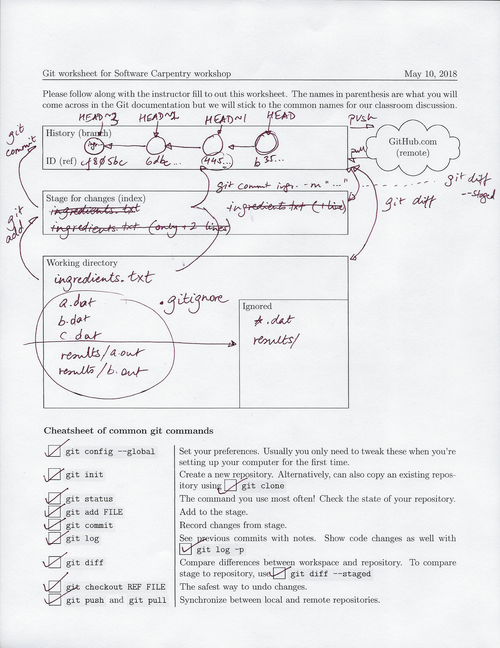 Git worksheet for Software Carpentry workshop May 10, 2018
Please follow along with the instructor fill to out this worksheet. The names in parenthesis are what you will
come across in the Git documentation but we will stick to the common names for our classroom discussion.
HEAD~2 HEAD~1 HEAD
push
git
commit
History (branch)
GitHub.com
(remote)
pull
ID (ref) cf805bc 6dbc... 445... b35...
git commit ingr. -m "..."
git diff
--staged
git diff
Stage for changes (index)
git
add
ingredients.txt
ingredients.txt (1 line)
ingredients.txt (only +2 lines)
Working directory
ingredients.txt
a.dat
.gitignore
b.dat
c.dat
results/a.out
results/b.out
Ignored
*.dat
results/
Cheatsheet of common git commands
git config --global Set your preferences. Usually you only need to tweak these when you're
setting up your computer for the first time.
git init Create a new repository. Alternatively, can also copy an existing repos-
itory using git clone
git status The command you use most often! Check the state of your repository.
git add FILE Add to the stage.
git commit Record changes from stage.
git log See previous commits with notes. Show code changes as well with
git log -p
git diff Compare differences between workspace and repository. To compare
stage to repository, use git diff --staged
git checkout REF FILE The safest way to undo changes.
git push and git pull Synchronize between local and remote repositories.